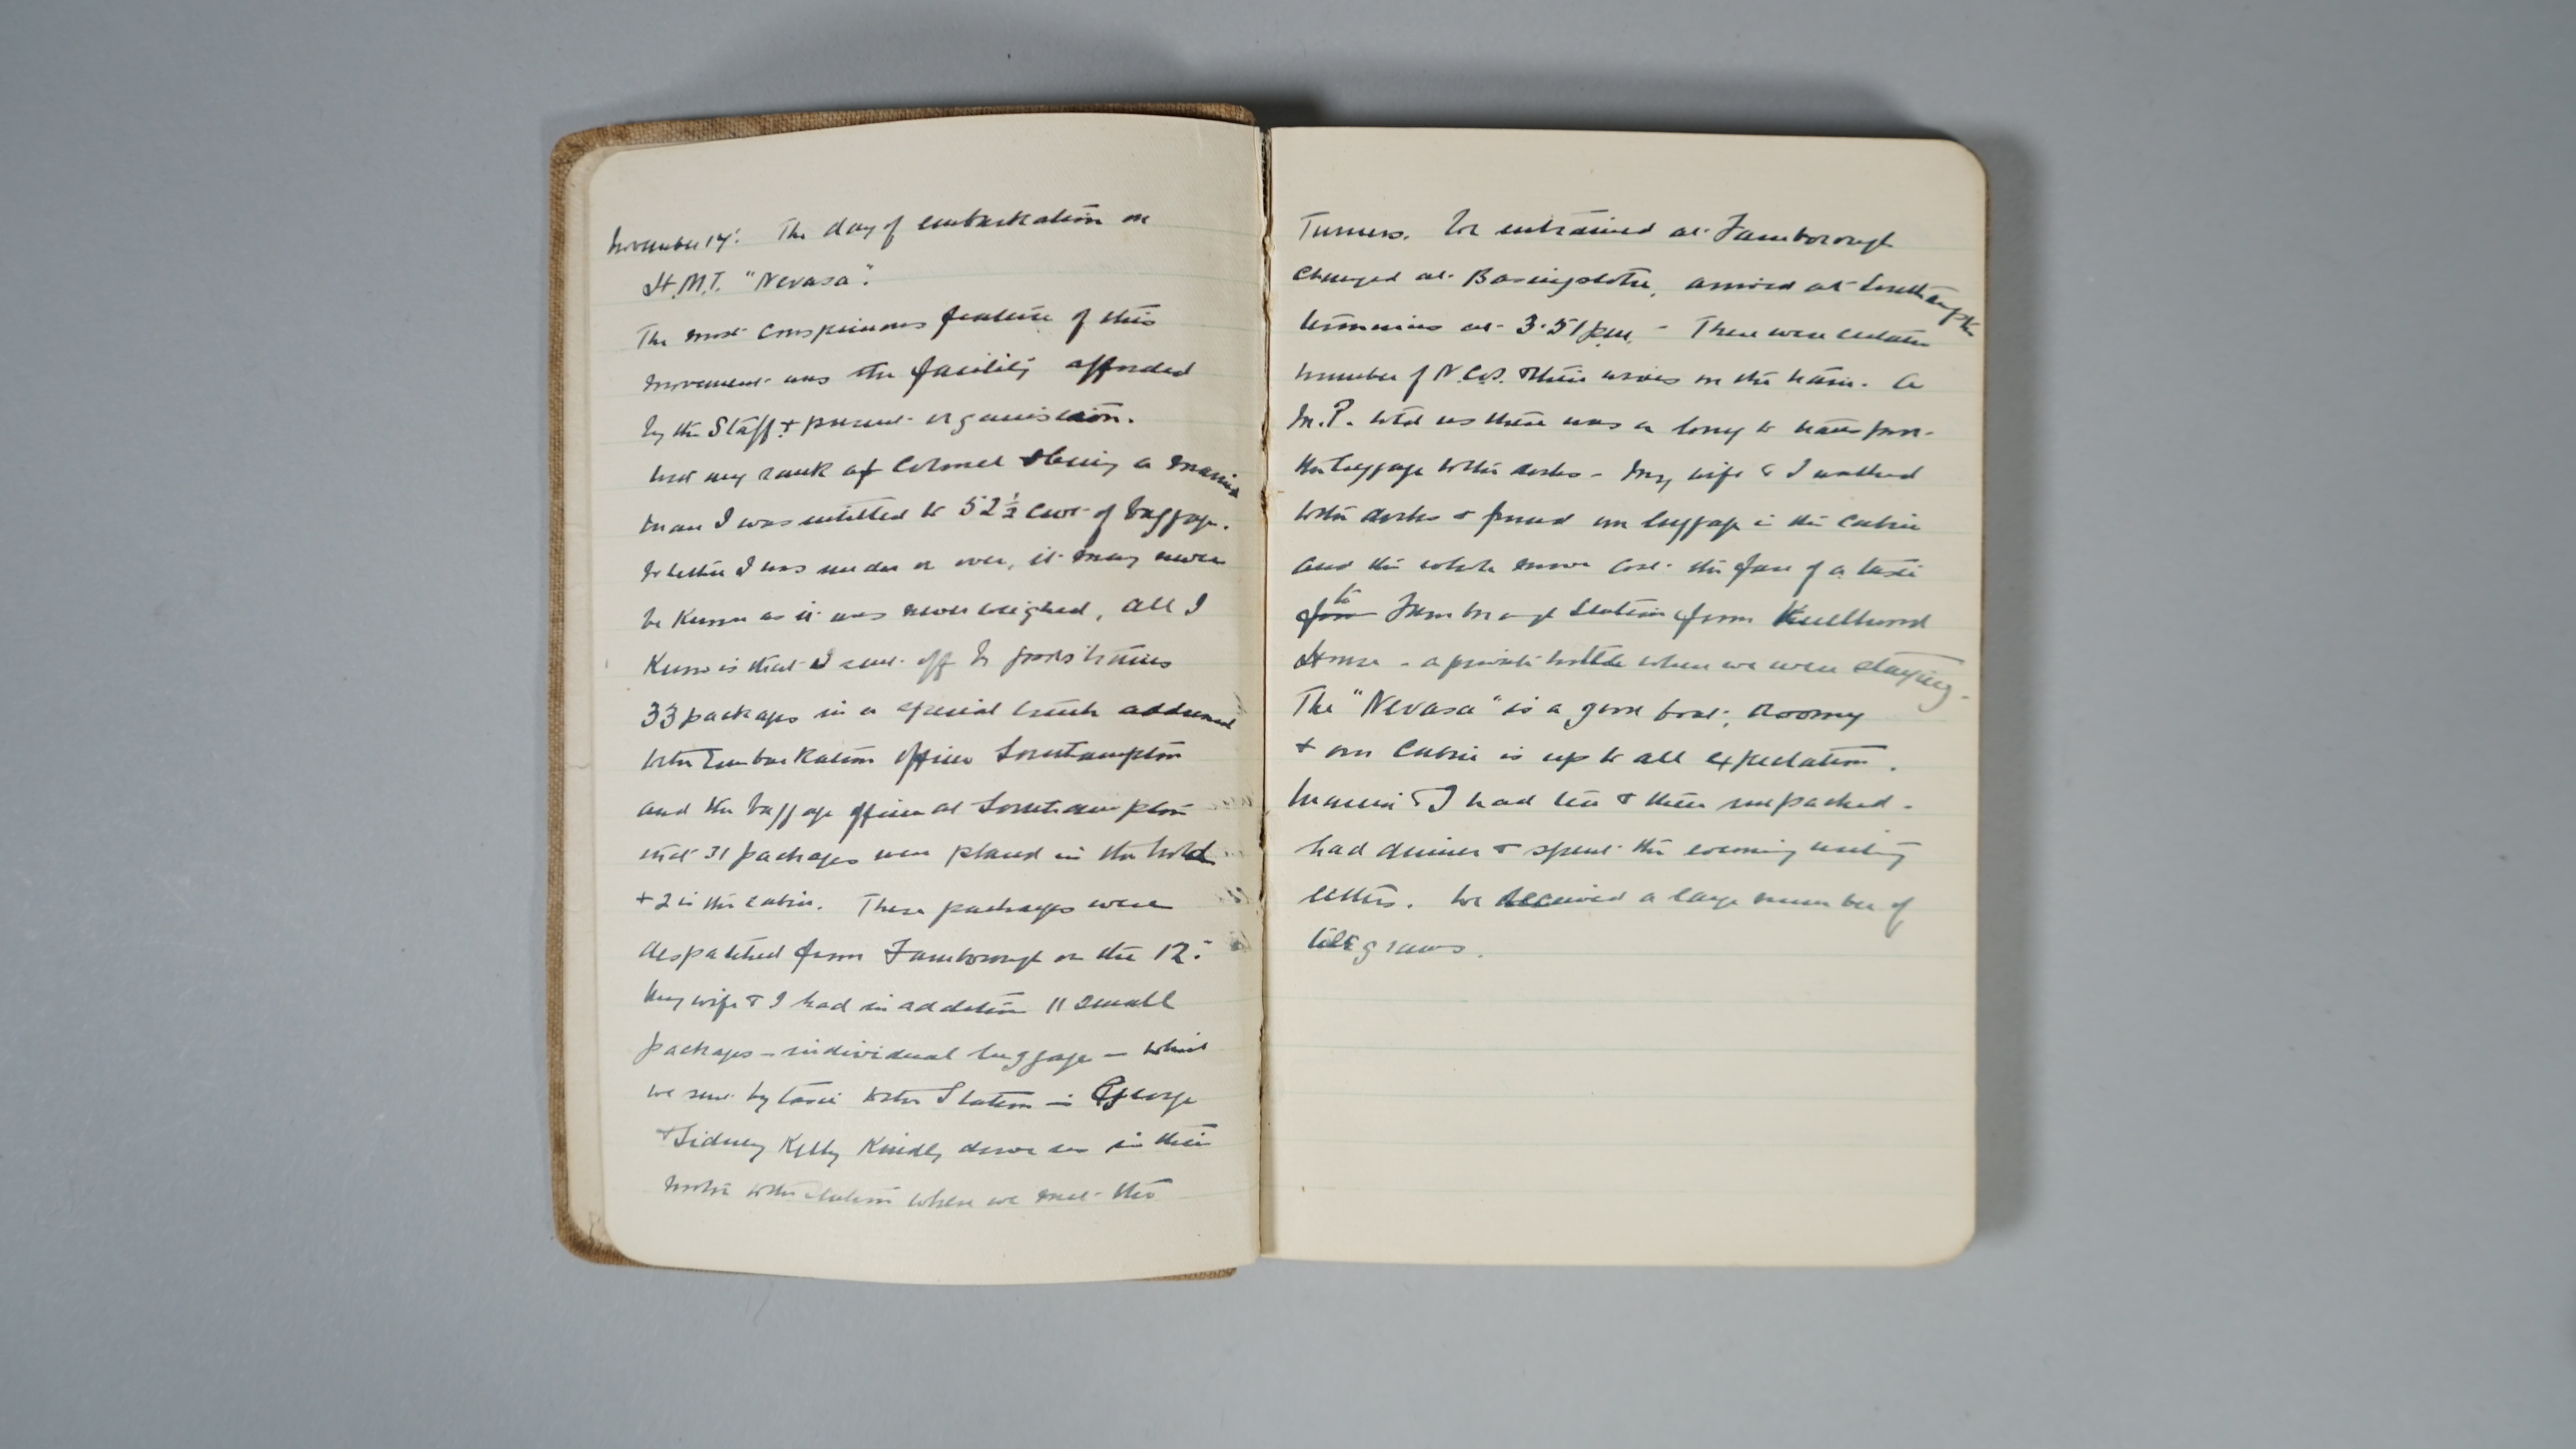 November 14: The day of embarkation on
H.M.T. "Nevasa".
The most conspicuous feature of this
movement was the facility afforded
by the Staff & present organisation.
With my rank of Colonel & being a married
man I was entitled to 52½ cwt of baggage.
Whether I was under or over, it may never
be known as it was never weighed, all I
know is that I sent off by goods trains
33 packages in a special truck addressed
to the Embarkation officer Southampton
and the baggage officer at Southampton
that 31 packages were placed in the hold
+ 2 in the cabin. These packages were
despatched from Farnborough on the 12:
My wife & I had in addition 11 small
packages – individual luggage – which
we sent by taxi to the Station – George
& Sidney Kelly kindly drove us in their
motor to the station where we met the
Turners. We entrained at Farnborough
changed at Basingstoke, arrived at Southampton
terminus at 3.51 pm. – There were certain
number of N.C.O. & their wives on the train. A
M.P. told us there was a lorry to transport
the luggage to the docks – My wife & I walked
to the docks & found our luggage in the cabin
and the whole move cost the fare of a taxi
from to Farnborough Station from
House – a private hotel where we were staying –
The "Nevasa" is a good boat; Roomy
+ our cabin is up to all expectation.
& I had tea & then unpacked –
had dinner & spent the evening writing
letters. We received a large number of
telegrams.